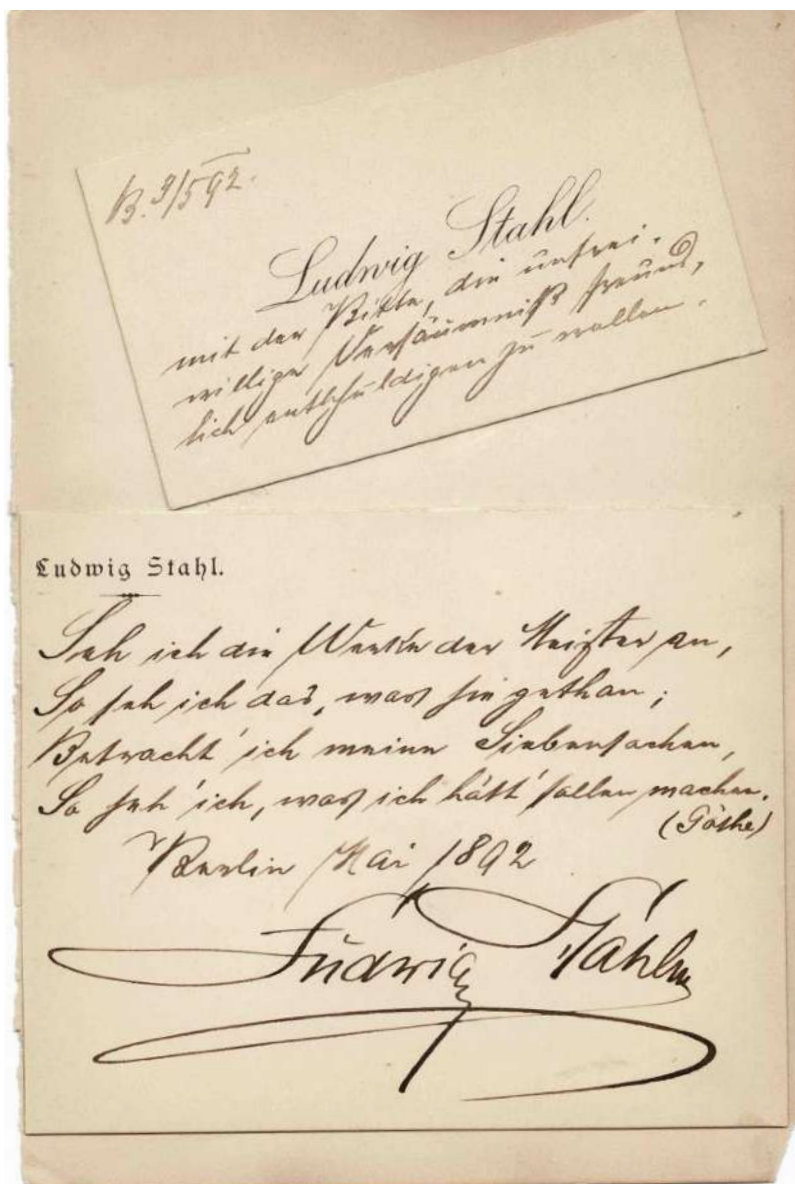 B. 3/5 92.
Ludwig Stahl.
mit der Bitte, die unfrei-
willige Versäumniß freund-
lich entschuldigen zu wollen.
Ludwig Stahl.
Seh ich die Werke der Meister an,
So seh ich das, was sie gethan;
Betracht' ich meine Siebensachen,
So seh' ich, was ich hätt' sollen machen.
(Göthe)
Berlin Mai 1892
Ludwig Stahl